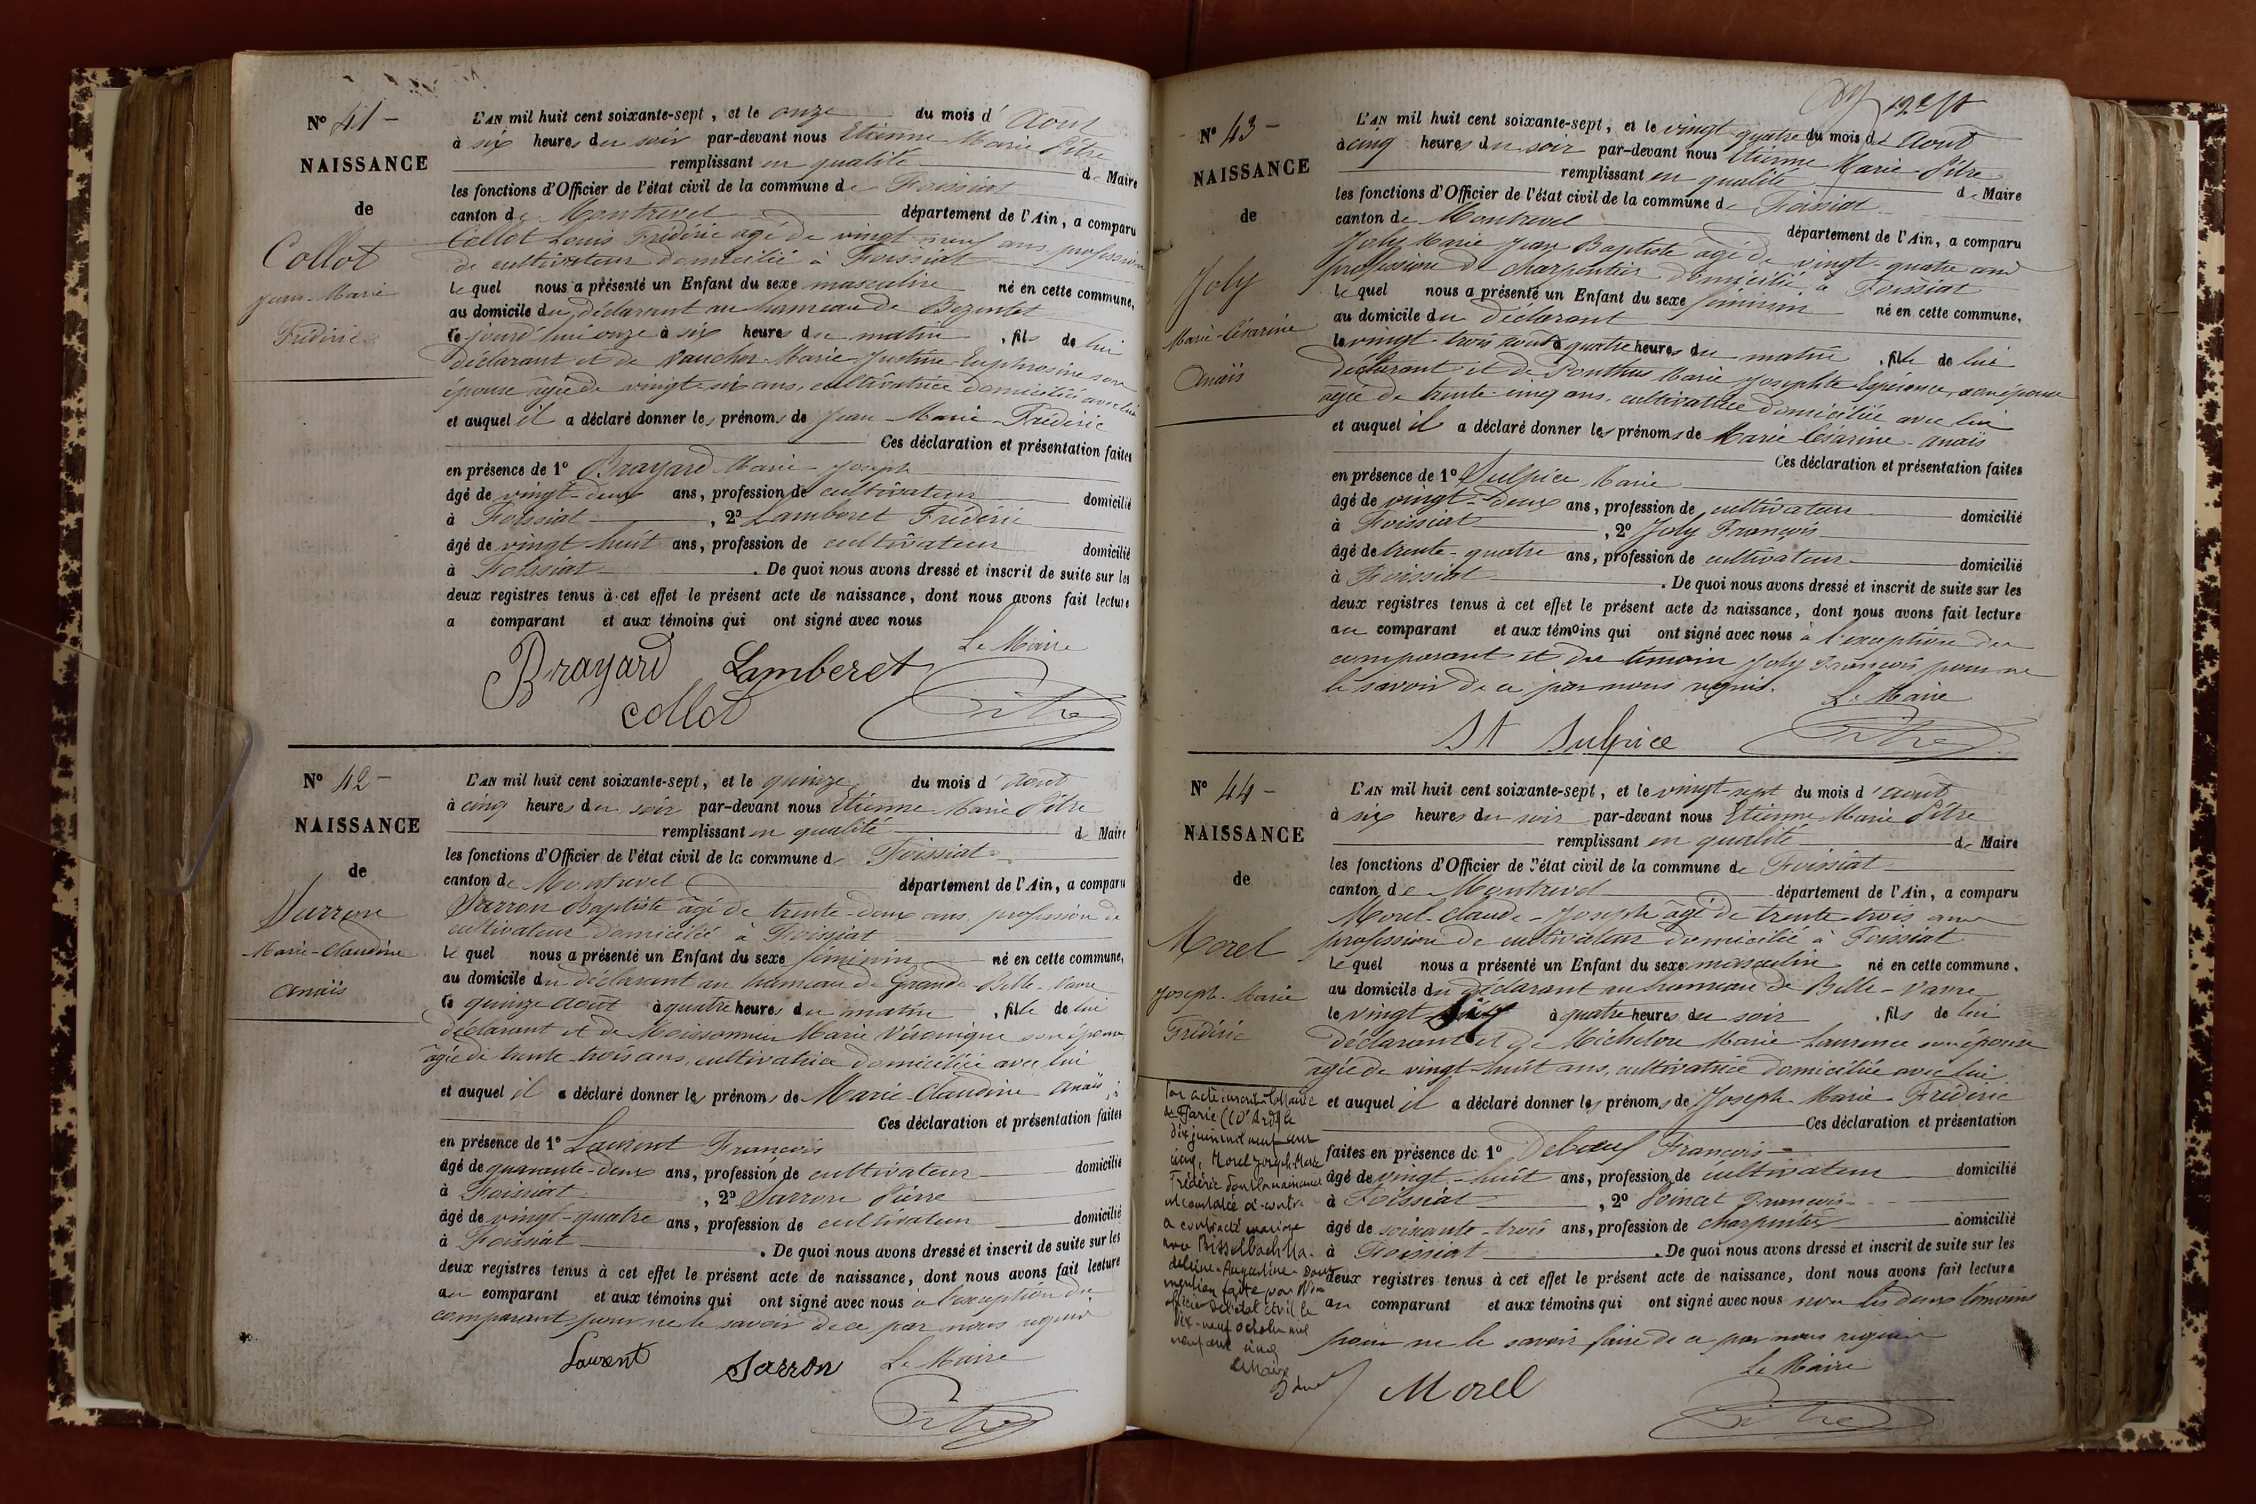 N° 41 -
NAISSANCE
de
Collot
Jean-Marie
Frédéric
L'AN mil huit cent soixante-sept, et le onze du mois d' Août
à six heures du soir par-devant nous Etienne Marie Pitre
remplissant en qualité de Maire
les fonctions d'Officier de l'état civil de la commune de Foissiat
canton de Montrevel département de l'Ain, a comparu
Collot Louis Frédéric âgé de vingt-neuf ans profession
de cultivateur domicilié à Foissiat
le quel nous a présenté un Enfant du sexe masculin né en cette commune,
au domicile du déclarant au hameau de
le jourd'hui onze à six heures du matin, fils de lui
déclarant et de Vaucher Marie Justine Euphrosine son
épouse âgée de vingt-six ans, cultivatrice domiciliée avec lui
et auquel il a déclaré donner les prénoms de Jean-Marie-Frédéric
Ces déclaration et présentation faites
en présence de 1° Brayard Marie-Joseph
âgé de vingt-deux ans, profession de cultivateur domicilié
à Foissiat, 2° Lamberet Frédéric
âgé de vingt huit ans, profession de cultivateur domicilié
à Foissiat. De quoi nous avons dressé et inscrit de suite sur les
deux registres tenus à cet effet le présent acte de naissance, dont nous avons fait lecture
a comparant et aux témoins qui ont signé avec nous
Le Maire
Brayard Lamberet
Collot Pitre
N° 42 -
NAISSANCE
de
Sarron
Marie-Claudine
Anaïs
L'AN mil huit cent soixante-sept, et le quinze du mois d' août
à cinq heures du soir par-devant nous Etienne Marie Pitre
remplissant en qualité de Maire
les fonctions d'Officier de l'état civil de la commune de Foissiat
canton de Montrevel département de l'Ain, a comparu
Sarron Baptiste âgé de trente-deux ans, profession de
cultivateur domicilié à Foissiat
le quel nous a présenté un Enfant du sexe féminin né en cette commune,
au domicile du déclarant au hameau de Grande Belle-Vavre
le quinze août à quatre heures du matin, fille de lui
déclarant et de Moissonnier Marie Véronique son épouse
âgée de trente-trois ans, cultivatrice domiciliée avec lui
et auquel il a déclaré donner les prénoms de Marie-Claudine Anaïs
Ces déclaration et présentation faites
en présence de 1° Laurent François
âgé de quarante-deux ans, profession de cultivateur domicilié
à Foissiat, 2° Sarron Pierre
âgé de vingt-quatre ans, profession de cultivateur domicilié
à Foissiat. De quoi nous avons dressé et inscrit de suite sur les
deux registres tenus à cet effet le présent acte de naissance, dont nous avons fait lecture
au comparant et aux témoins qui ont signé avec nous à l'exception du
comparant pour ne le savoir de ce par nous requis
Laurent Sarron Le Maire
Pitre
N° 43 -
NAISSANCE
de
Joly
Marie-Césarine
Anaïs
L'AN mil huit cent soixante-sept, et le vingt-quatre du mois d' Août
à cinq heures du soir par-devant nous Etienne Marie-Pitre
remplissant en qualité de Maire
les fonctions d'Officier de l'état civil de la commune de Foissiat
canton de Montrevel département de l'Ain, a comparu
Joly Marie Jean Baptiste âgé de vingt-quatre ans
profession de charpentier domicilié à Foissiat
le quel nous a présenté un Enfant du sexe féminin né en cette commune,
au domicile du déclarant
le vingt-trois août à quatre heures du matin, fille de lui
déclarant et de Ponthus Marie Josephte Espérance, son épouse
âgée de trente-cinq ans, cultivatrice domiciliée avec lui
et auquel il a déclaré donner les prénoms de Marie Césarine-Anaïs
Ces déclaration et présentation faites
en présence de 1° Sulpice Marie
âgé de vingt-deux ans, profession de cultivateur domicilié
à Foissiat, 2° Joly François
âgé de trente-quatre ans, profession de cultivateur domicilié
à Foissiat. De quoi nous avons dressé et inscrit de suite sur les
deux registres tenus à cet effet le présent acte de naissance, dont nous avons fait lecture
au comparant et aux témoins qui ont signé avec nous à l'exception du
comparant et du témoin Joly François pour ne
le savoir de ce par nous requis. Le Maire
St Sulpice Pitre
N° 44 -
NAISSANCE
de
Morel
Joseph-Marie
Frédéric
L'AN mil huit cent soixante-sept, et le vingt-sept du mois d' août
à six heures du soir par-devant nous Etienne Marie Pitre
remplissant en qualité de Maire
les fonctions d'Officier de l'état civil de la commune de Foissiat
canton de Montrevel département de l'Ain, a comparu
Morel-Claude-Joseph âgé de trente-trois ans
profession de cultivateur domicilié à Foissiat
le quel nous a présenté un Enfant du sexe masculin né en cette commune,
au domicile du déclarant au hameau de Belle-Vavre
le vingt à quatre heures du soir, fils de lui
déclarant et de Michelon Marie-Laurence son épouse
âgée de vingt-huit ans, cultivatrice domiciliée avec lui
et auquel il a déclaré donner les prénoms de Joseph-Marie-Frédéric
Ces déclaration et présentation
faites en présence de 1° Deboeuf François
âgé de vingt-huit ans, profession de cultivateur domicilié
à Foissiat, 2° Poncet François
âgé de soixante-trois ans, profession de charpentier domicilié
à Foissiat. De quoi nous avons dressé et inscrit de suite sur les
deux registres tenus à cet effet le présent acte de naissance, dont nous avons fait lecture
au comparant et aux témoins qui ont signé avec nous non les deux témoins
pour ne le savoir faire de ce par nous requis
Le Maire
Morel Pitre
Par acte inscrit à la Mairie
de Paris (10e Ardt) le
dix juin mil neuf cent
cinq, Morel Joseph-Marie
Frédéric dont la naissance
est constatée ci-contre
a contracté mariage
avec Bisselbach Ma-
deleine-Augustine. Dont
mention faite par Nous
officier de l'état civil le
dix-neuf octobre mil
neuf cent cinq
Le Maire